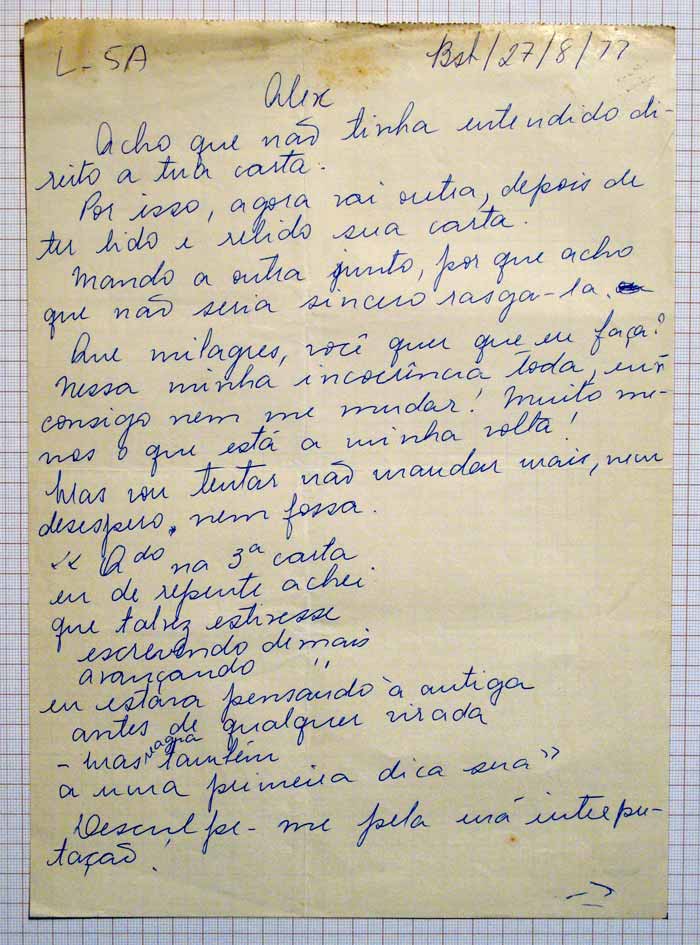 L-5A
Bsb/27/8/77
Alex
Acho que não tinha entendido di-
reito a tua carta.
Por isso, agora vai outra, depois de
ter lido e relido sua carta.
Mando a outra junto, por que acho
que não seria sincero rasga-la.
Que milagres, você quer que eu faça?
Nessa minha incoerência toda, eu ñ
consigo nem me mudar! Muito me-
nos o que está a minha volta!
Mas vou tentar não mandar mais, nem
desespero, nem fossa.
<< Qdo na 3ª carta
eu de repente achei
que talvez estivesse
escrevendo demais
avançando "
eu estava pensando à antiga
antes de qualquer virada
- Mas também
a uma primeira dica sua >>
Desculpe-me pela má interpre-
tação!